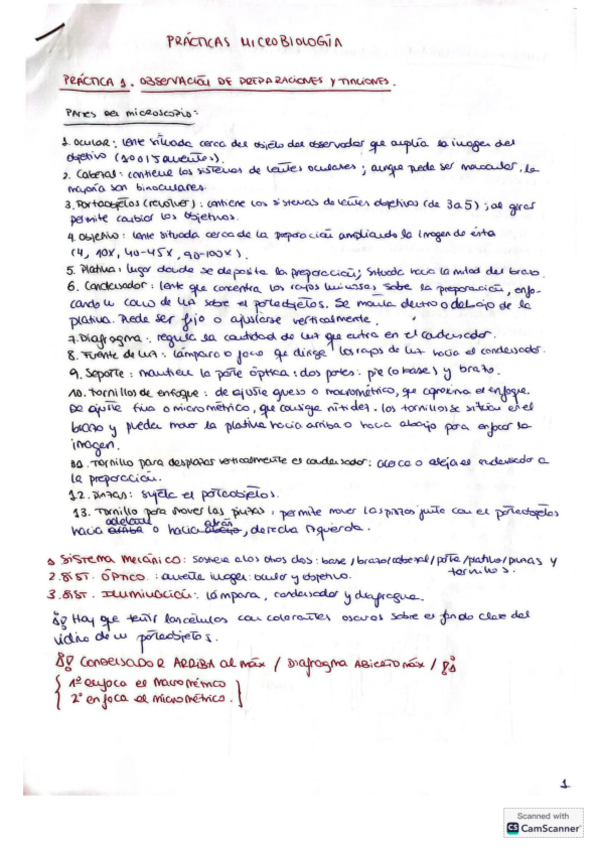 PRÁCTICAS MICROBIOLOGÍA
PRÁCTICA 1. OBSERVACIÓN DE PREPARACIONES Y TINCIONES.
Partes del microscopio:
1. Ocular: lente situada cerca del objeto del observador que amplía la imagen del
objetivo (10 o 15 aumentos).
2. Cabezal: contiene los sistemas de lentes oculares; aunque puede ser monocular, la
mayoría son binoculares.
3. Portaobjetos (revólver): contiene los sistemas de lentes objetivas (de 3 a 5); al girar
permite cambiar los objetivos.
4. Objetivo: lente situada cerca de la preparación ampliando la imagen de ésta
(4, 10x, 40-45x, 90-100x).
5. Platina: lugar donde se deposita la preparación; situada hacia la mitad del brazo.
6. Condensador: lente que concentra los rayos luminosos sobre la preparación, enfo-
cando un cono de luz sobre el portaobjetos. Se mueve dentro o debajo de la
platina. Puede ser fijo o ajustarse verticalmente.
7. Diafragma: regula la cantidad de luz que entra en el condensador.
8. Fuente de luz: lámpara o foco que dirige los rayos de luz hacia el condensador.
9. Soporte: mantiene la parte óptica: dos partes: pie (o base) y brazo.
10. Tornillos de enfoque: de ajuste grueso o macrométrico, que aproxima el enfoque.
De ajuste fino o micrométrico, que consigue nitidez. los tornillos se sitúan en el
brazo y pueden mover la platina hacia arriba o hacia abajo para enfocar la
imagen.
11. Tornillo para desplazar verticalmente el condensador: acerca o aleja el condensador a
la preparación.
12. Pinzas: sujeta el portaobjetos.
13. Tornillo para mover las pinzas: permite mover las pinzas junto con el portaobjetos
adelante atrás
hacia arriba o hacia abajo, derecha izquierda.
SISTEMA MECÁNICO: sostiene a los otros dos: base/brazo/cabezal/porta/platina/pinzas y
tornillos.
2. SIST. ÓPTICO: aumenta imagen: ocular y objetivo.
3. SIST. ILUMINACIÓN: lámpara, condensador y diafragma.
Hay que teñir las células con colorantes oscuros sobre el fondo claro del
vidrio de un portaobjetos.
CONDENSADOR ARRIBA al máx / Diafragma ABIERTO máx /
1º enfoca el macrométrico
2º enfoca el micrométrico.
1
Scanned with
CS CamScanner